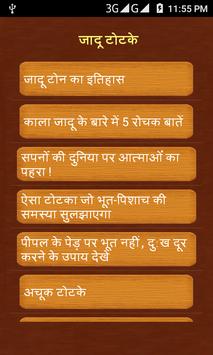 3G G 11:55 PM
जादू टोटके
जादू टोन का इतिहास
काला जादू के बारे में 5 रोचक बातें
सपनों की दुनिया पर आत्माओं का
पहरा !
ऐसा टोटका जो भूत-पिशाच की
समस्या सुलझाएगा
पीपल के पेड़ पर भूत नहीं , दु: ख दूर
करने के उपाय देखें
अचूक टोटके